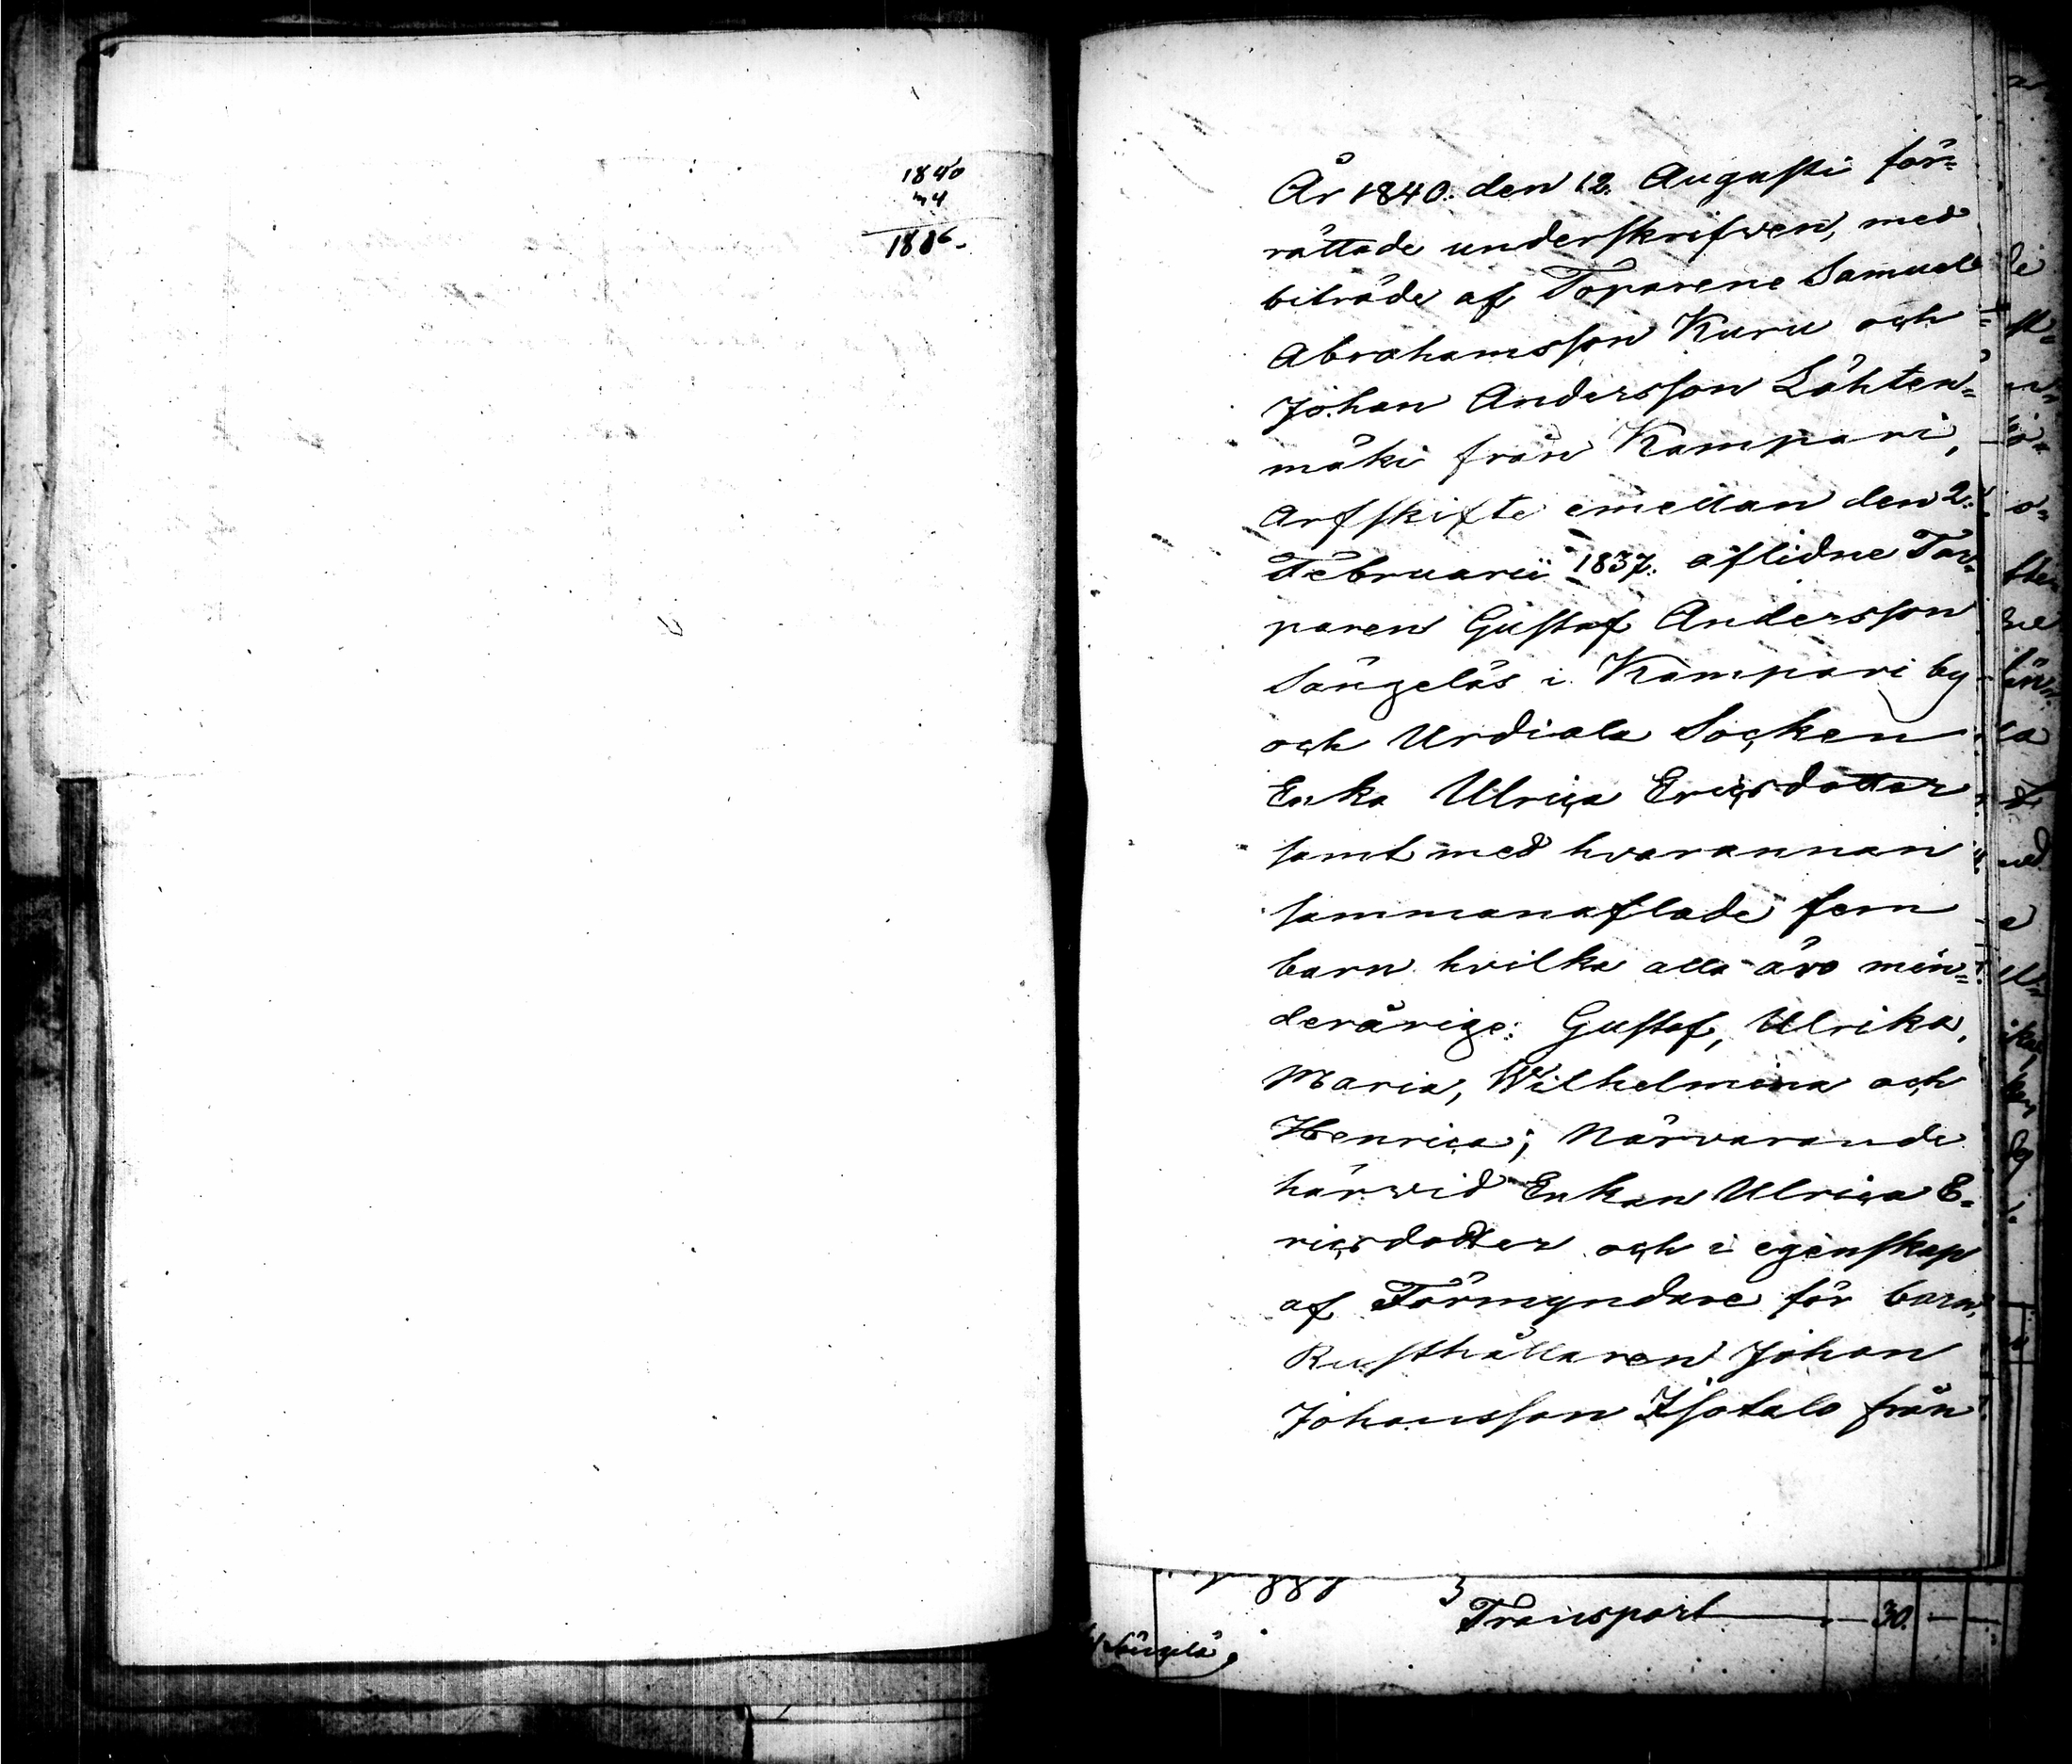 1840
År 1840. den 12. Augusti för=
rättade underskrifven, med
biträde af Toparene Samuel
Abrahamsson Kuru och
Johan Andersson Lähten=
mäki från Kampari,
Arfskifte emellan den 2.
Februarii 1837. aflidne Tor=
paren Gustaf Andersson
Sängeläs i Kampari by
och Urdiala Socken
Enka Ulrica Ericsdotter
samt med hvarannan
sammanaflade fem
barn hvilka alla äro min=
derårige: Gustaf, Ulrika,
Maria, Wilhelmina och
Henrica; Närvarande
härvid Enkan Ulrica E=
ricsdotter och i egenskap
af Förmyndare för barn,
Rusthållaren Johan
Johansson Isotalo från
Transport 30.
Sängelä